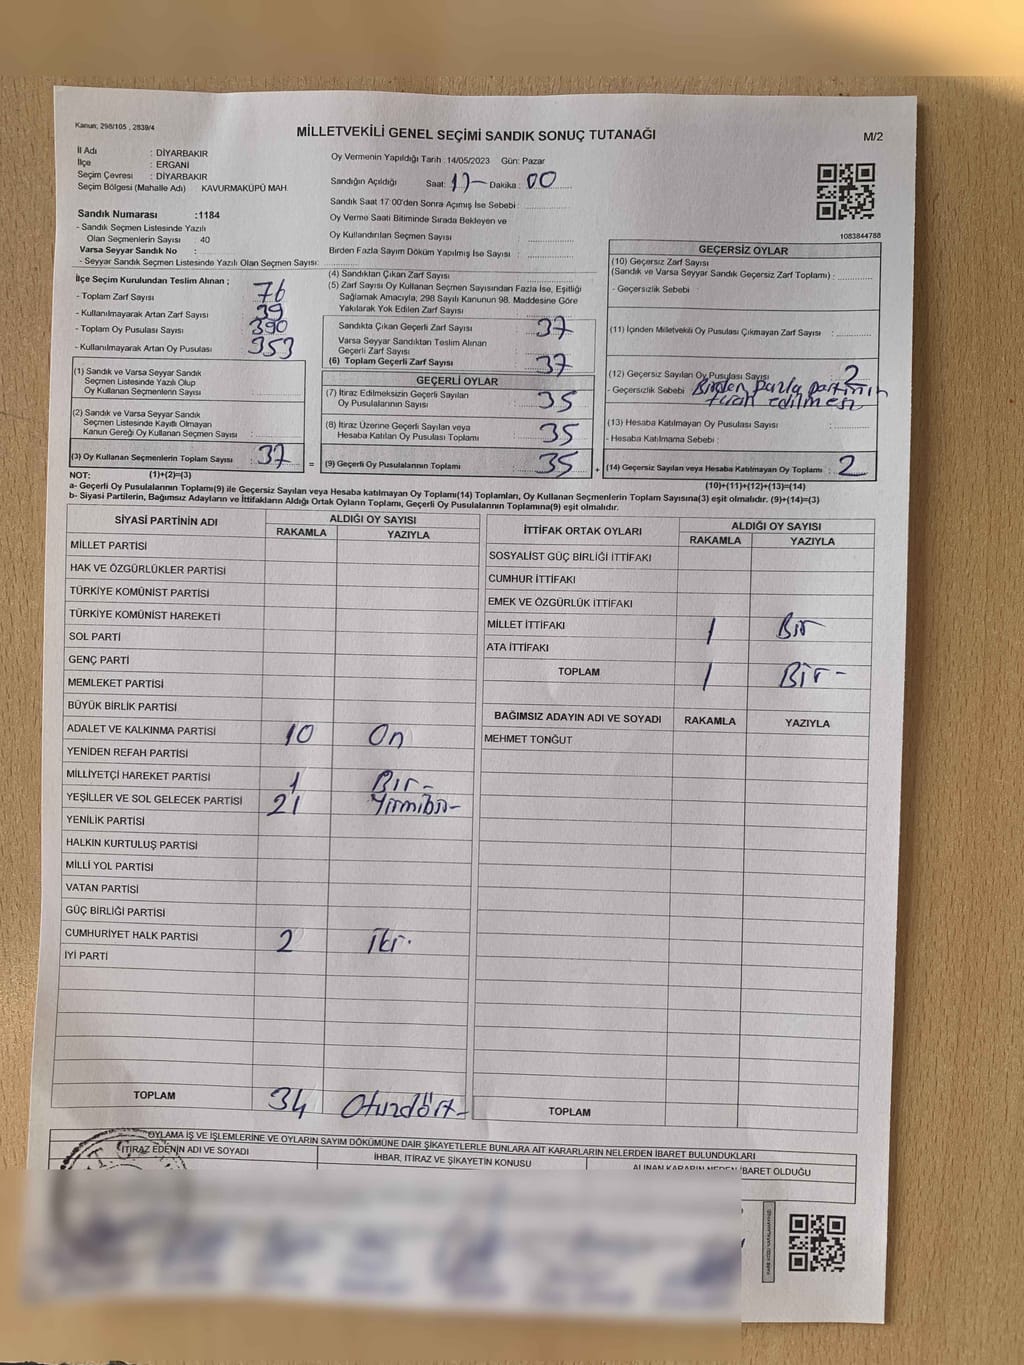 Kanun; 298/105 , 2839/4
MİLLETVEKİLİ GENEL SEÇİMİ SANDIK SONUÇ TUTANAĞI
M/2
İl Adı : DİYARBAKIR
İlçe : ERGANİ
Seçim Çevresi : DİYARBAKIR
Seçim Bölgesi (Mahalle Adı) KAVURMAKÜPÜ MAH.
Sandık Numarası :1184
- Sandık Seçmen Listesinde Yazılı
Olan Seçmenlerin Sayısı 40
Varsa Seyyar Sandık No :
- Seyyar Sandık Seçmen Listesinde Yazılı Olan Seçmen Sayısı:
Oy Vermenin Yapıldığı Tarih :14/05/2023 Gün: Pazar
Sandığın Açıldığı Saat: 17 Dakika : 00
Sandık Saat 17 00'den Sonra Açımış İse Sebebi :
Oy Verme Saati Bitiminde Sırada Bekleyen ve
Oy Kullandırılan Seçmen Sayısı :
Birden Fazla Sayım Döküm Yapılmış İse Sayısı :
1083844788
İlçe Seçim Kurulundan Teslim Alınan ;
- Toplam Zarf Sayısı : 76
- Kullanılmayarak Artan Zarf Sayısı : 39
- Toplam Oy Pusulası Sayısı : 390
- Kullanılmayarak Artan Oy Pusulası : 353
(1) Sandık ve Varsa Seyyar Sandık
Seçmen Listesinde Yazılı Olup
Oy Kullanan Seçmenlerin Sayısı :
(2) Sandık ve Varsa Seyyar Sandık
Seçmen Listesinde Kayıtlı Olmayan
Kanun Gereği Oy Kullanan Seçmen Sayısı :
(3) Oy Kullanan Seçmenlerin Toplam Sayısı : 37
(4) Sandıktan Çıkan Zarf Sayısı
(5) Zarf Sayısı Oy Kullanan Seçmen Sayısından Fazla İse, Eşitliği
Sağlamak Amacıyla; 298 Sayılı Kanunun 98. Maddesine Göre
Yakılarak Yok Edilen Zarf Sayısı :
Sandıkta Çıkan Geçerli Zarf Sayısı : 37
Varsa Seyyar Sandıktan Teslim Alınan
Geçerli Zarf Sayısı :
(6) Toplam Geçerli Zarf Sayısı : 37
GEÇERLİ OYLAR
(7) İtiraz Edilmeksizin Geçerli Sayılan
Oy Pusulalarının Sayısı : 35
(8) İtiraz Üzerine Geçerli Sayılan veya
Hesaba Katılan Oy Pusulası Toplamı : 35
= (9) Geçerli Oy Pusulalarının Toplamı : 35 +
GEÇERSİZ OYLAR
(10) Geçersiz Zarf Sayısı
(Sandık ve Varsa Seyyar Sandık Geçersiz Zarf Toplamı) :
- Geçersizlik Sebebi :
(11) İçinden Milletvekili Oy Pusulası Çıkmayan Zarf Sayısı :
(12) Geçersiz Sayılan Oy Pusulası Sayısı : 2
- Geçersizlik Sebebi : Birden fazla partinin
tercih edilmesi
(13) Hesaba Katılmayan Oy Pusulası Sayısı :
- Hesaba Katılmama Sebebi :
(14) Geçersiz Sayılan veya Hesaba Katılmayan Oy Toplamı : 2
NOT: (1)+(2)=(3)
(10)+(11)+(12)+(13)=(14)
a- Geçerli Oy Pusulaları Toplamı(9) ile Geçersiz Sayılan veya Hesaba katılmayan Oy Toplamı(14) Toplamları, Oy Kullanan Seçmenlerin Toplam Sayısına(3) eşit olmalıdır. (9)+(14)=(3)
b- Siyasi Partilerin, Bağımsız Adayların ve İttifakların Aldığı Ortak Oyların Toplamı, Geçerli Oy Pusulalarının Toplamına(9) eşit olmalıdır.
SİYASİ PARTİNİN ADI ALDIĞI OY SAYISI
RAKAMLA YAZIYLA
MİLLET PARTİSİ
HAK VE ÖZGÜRLÜKLER PARTİSİ
TÜRKİYE KOMÜNİST PARTİSİ
TÜRKİYE KOMÜNİST HAREKETİ
SOL PARTİ
GENÇ PARTİ
MEMLEKET PARTİSİ
BÜYÜK BİRLİK PARTİSİ
ADALET VE KALKINMA PARTİSİ 10 On
YENİDEN REFAH PARTİSİ
MİLLİYETÇİ HAREKET PARTİSİ 1 Bir-
YEŞİLLER VE SOL GELECEK PARTİSİ 21 Yirmibir-
YENİLİK PARTİSİ
HALKIN KURTULUŞ PARTİSİ
MİLLİ YOL PARTİSİ
VATAN PARTİSİ
GÜÇ BİRLİĞİ PARTİSİ
CUMHURİYET HALK PARTİSİ 2 iki.
İYİ PARTİ
TOPLAM 34 Otuzdört-
İTTİFAK ORTAK OYLARI ALDIĞI OY SAYISI
RAKAMLA YAZIYLA
SOSYALİST GÜÇ BİRLİĞİ İTTİFAKI
CUMHUR İTTİFAKI
EMEK VE ÖZGÜRLÜK İTTİFAKI
MİLLET İTTİFAKI 1 Bir
ATA İTTİFAKI
TOPLAM 1 Bir-
BAĞIMSIZ ADAYIN ADI VE SOYADI RAKAMLA YAZIYLA
MEHMET TONĞUT
TOPLAM
OYLAMA İŞ VE İŞLEMLERİNE VE OYLARIN SAYIM DÖKÜMÜNE DAİR ŞİKAYETLERLE BUNLARA AİT KARARLARIN NELERDEN İBARET BULUNDUKLARI
İTİRAZ EDENİN ADI VE SOYADI İHBAR, İTİRAZ VE ŞİKAYETİN KONUSU ALINAN KARARIN NEDEN İBARET OLDUĞU